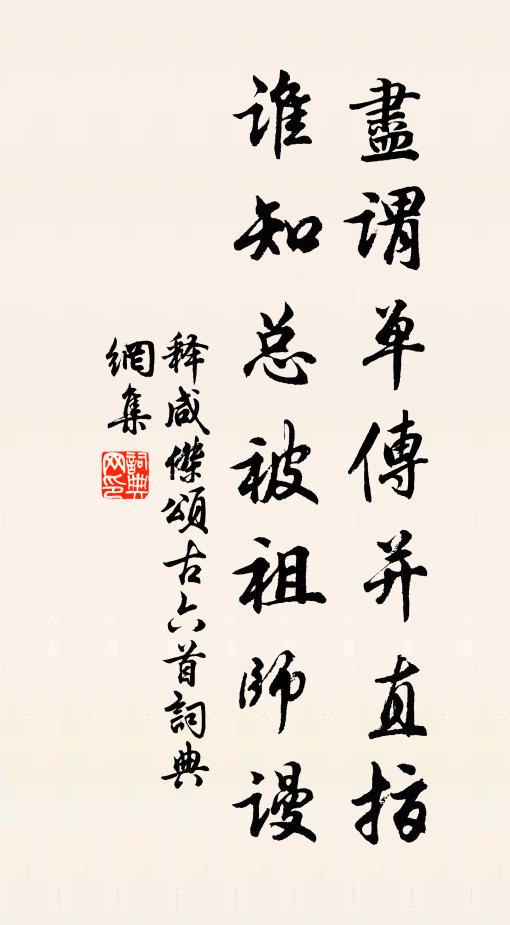 盡謂单傳并直指
谁知总被祖師谩
释咸傑頌古六首詞典
網集
詞典網印